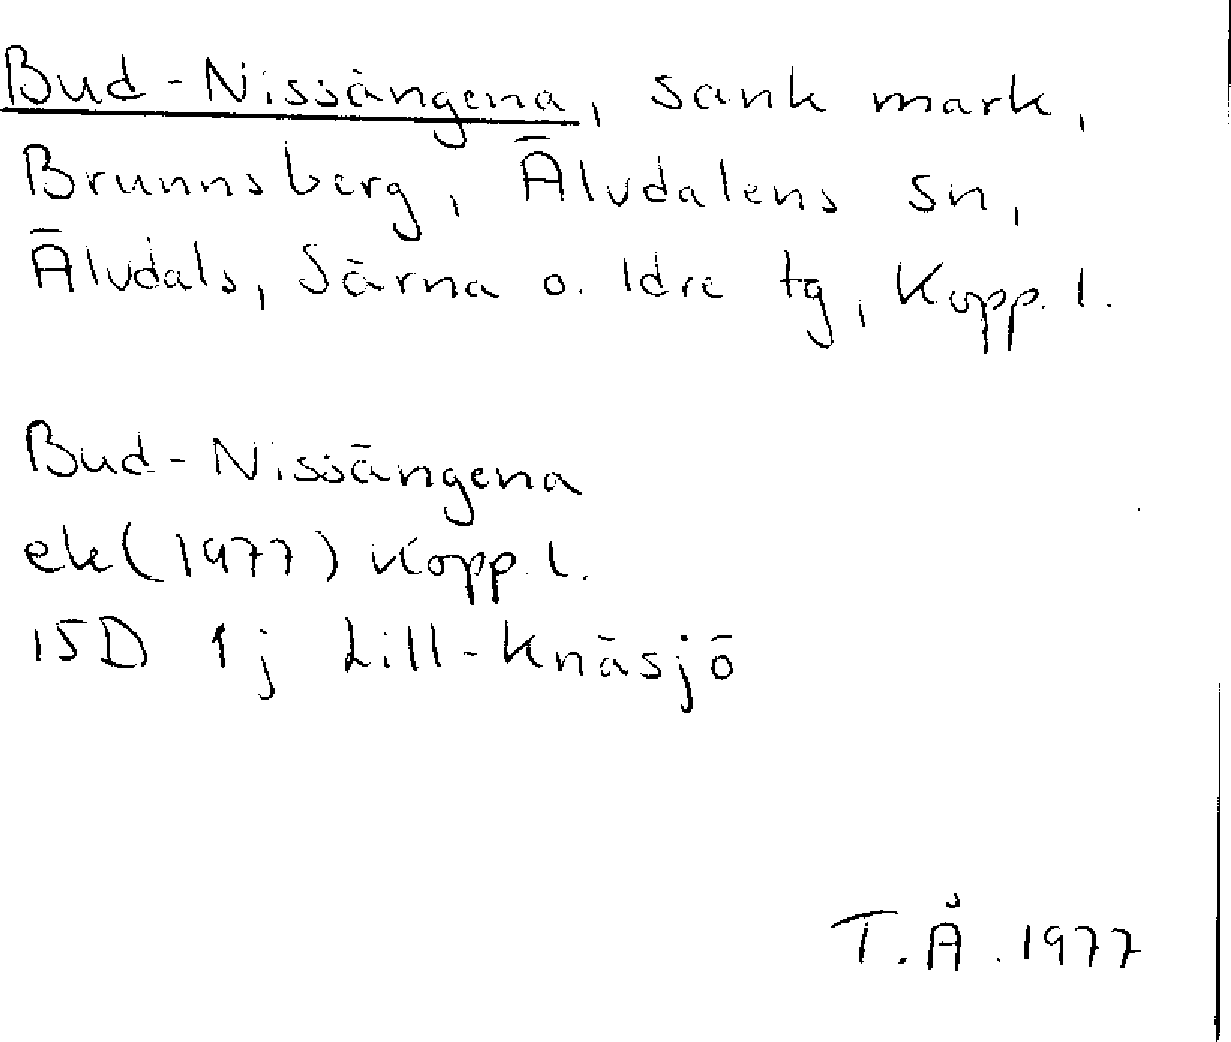 Bud-Nissängena, sank mark,
Brunnsberg, Älvdalens sn,
Älvdals, Särna o. Idre tg, Kopp. l.
Bud-Nissängena
ek (1977) Kopp. l.
15D 1j Lill-Knäsjö
T.Å. 1977